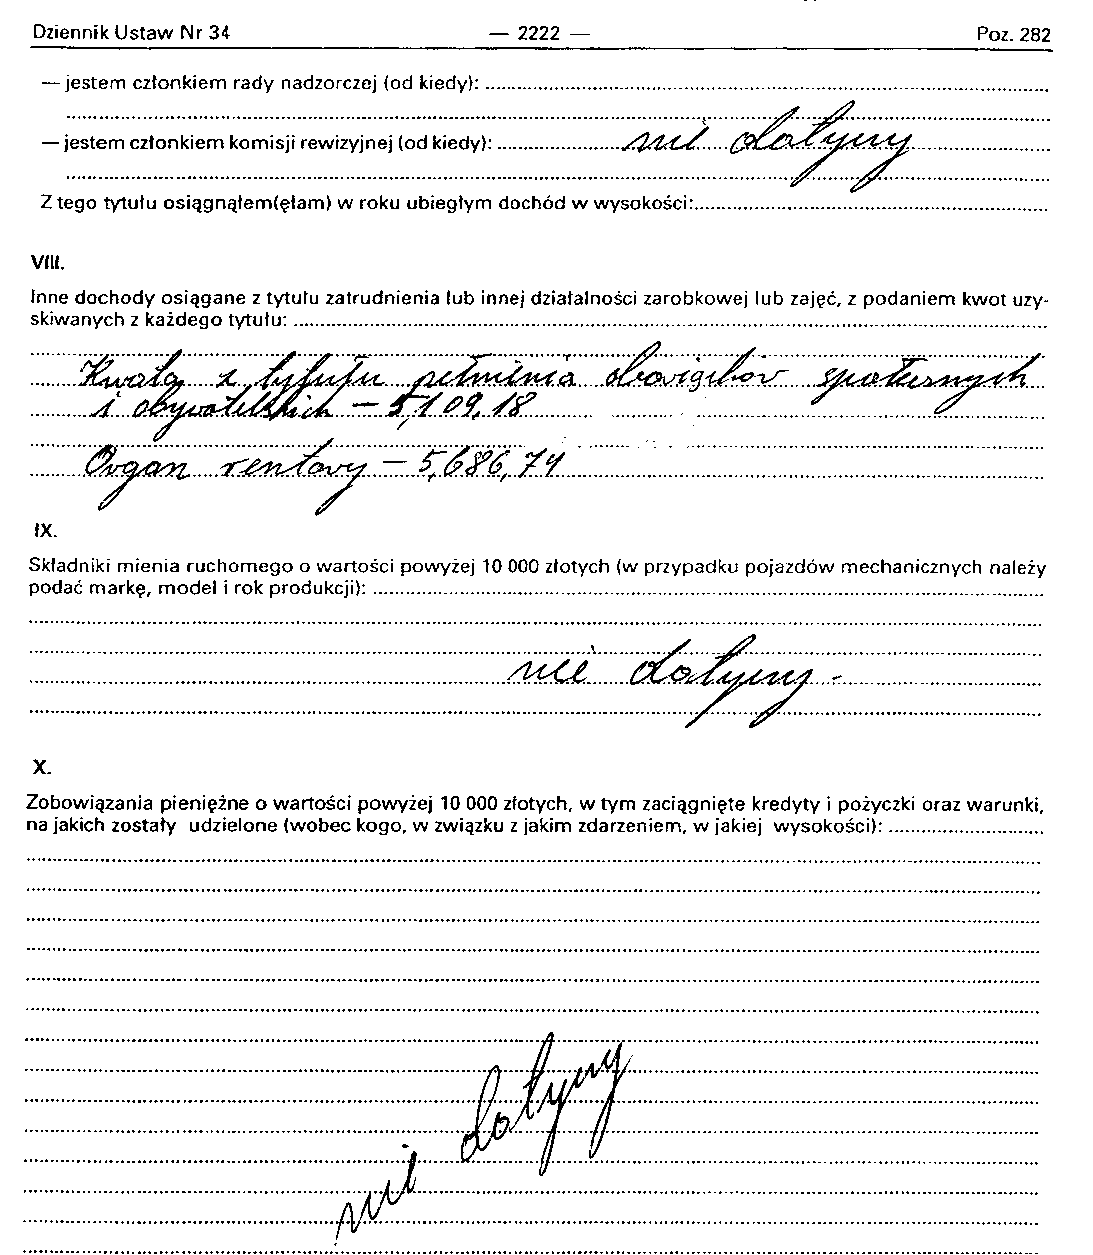 Dziennik Ustaw Nr 34 — 2222 — Poz. 282
— jestem członkiem rady nadzorczej (od kiedy):
— jestem członkiem komisji rewizyjnej (od kiedy): nie dotyczy
Z tego tytułu osiągnąłem(ęłam) w roku ubiegłym dochód w wysokości:
VIII.
Inne dochody osiągane z tytułu zatrudnienia lub innej działalności zarobkowej lub zajęć, z podaniem kwot uzy-
skiwanych z każdego tytułu:
Kwota z tytułu pełnienia obowiązków społecznych
i obywatelskich – 5,109,18
Organ rentowy – 5,686,74
IX.
Składniki mienia ruchomego o wartości powyżej 10 000 złotych (w przypadku pojazdów mechanicznych należy
podać markę, model i rok produkcji):
nie dotyczy -
X.
Zobowiązania pieniężne o wartości powyżej 10 000 złotych, w tym zaciągnięte kredyty i pożyczki oraz warunki,
na jakich zostały udzielone (wobec kogo, w związku z jakim zdarzeniem, w jakiej wysokości):
nie dotyczy